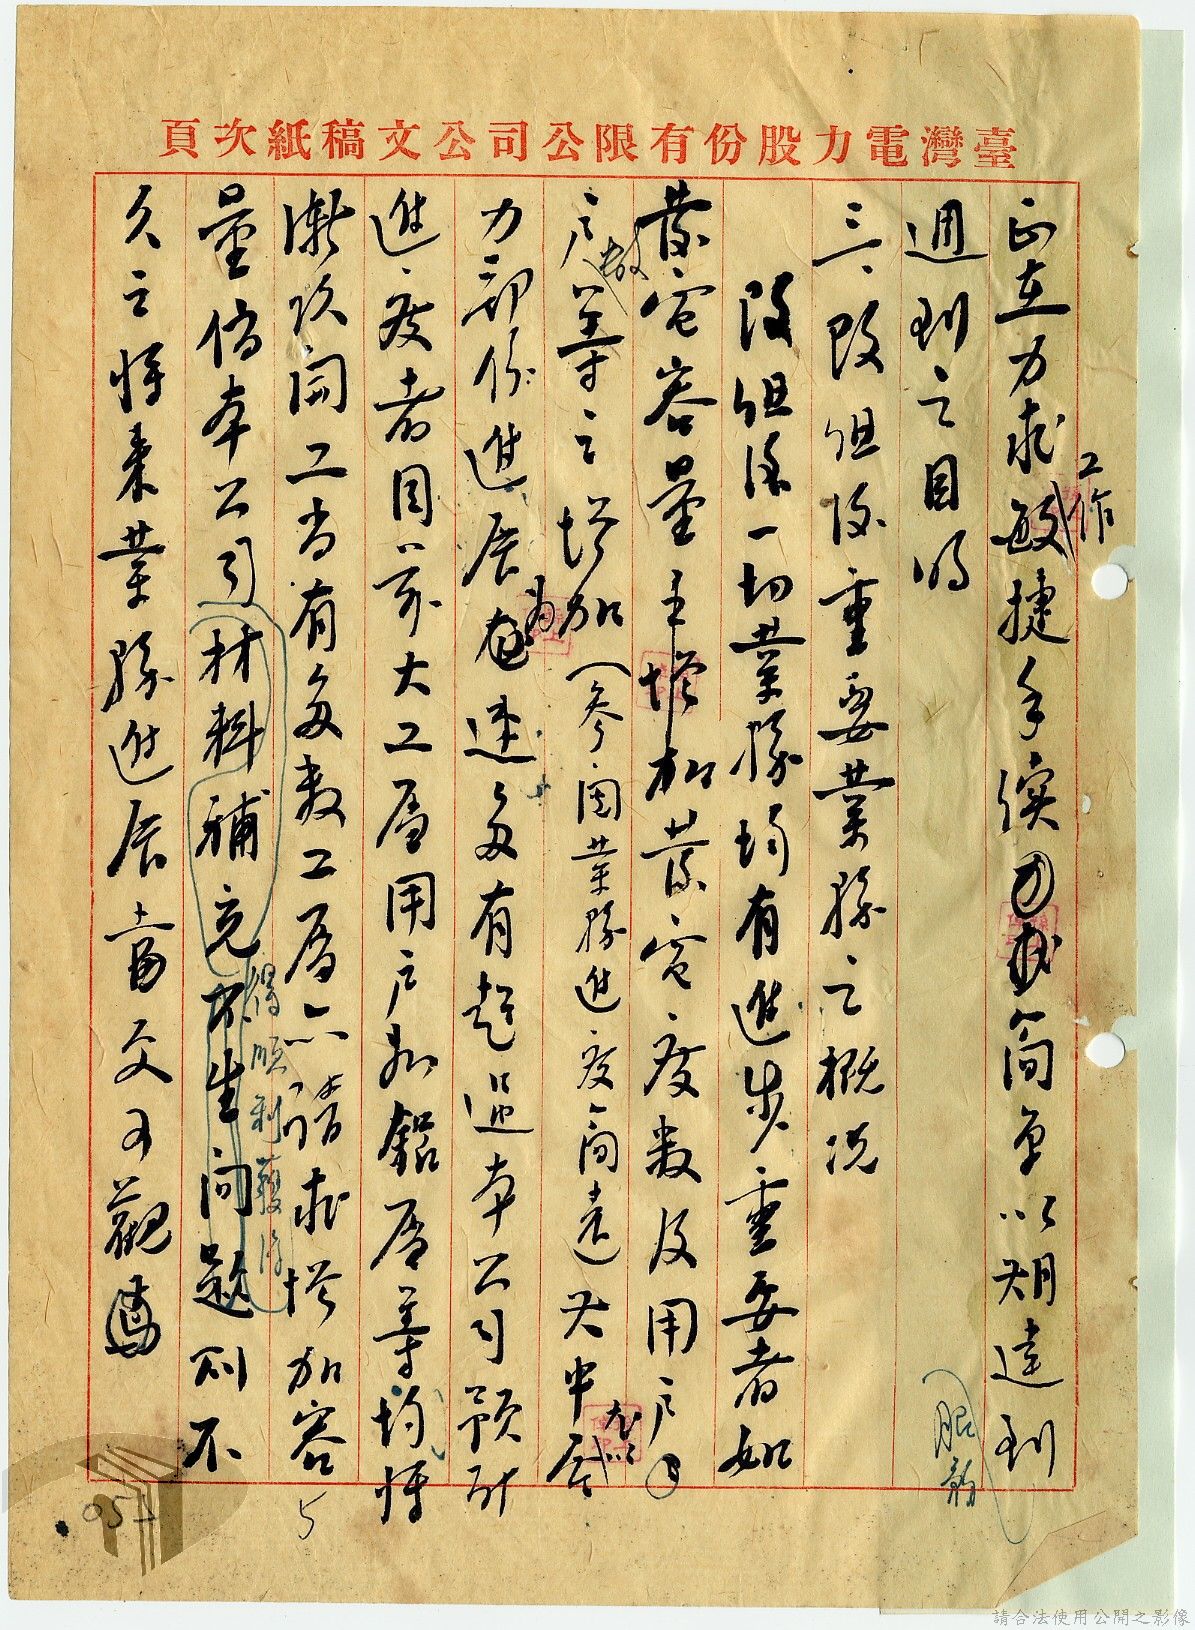 臺灣電力股份有限公司公文稿紙次頁
正在力求工作敏捷手續簡單以期達到
週到之目的 服務
三、改組後重要業務之概況
改組後一切業務均有進步重要者如
發電容量主增加發電度數及用戶
戶數等之增加(參閱業務進度簡表)其中尤以
力部份進展為速多有超過本公司預計
進度者目前大工廠用戶如鋁廠等均將
漸次開工尚有多數工廠亦請求增加容
量倘本公司材料補充得順利獲得不生問題則不
久之將來業務進展當更可觀
5
051
請合法使用公開之影像